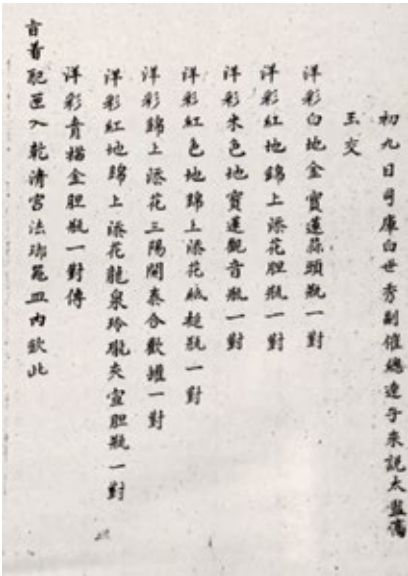 初九日司庫白世秀副催總達子來說太監高
玉交
洋彩白地金寶蓮蒜頭瓶一對
洋彩紅地錦上添花胆瓶一對
洋彩米色地寶蓮觀音瓶一對
洋彩紅色地錦上添花紙槌瓶一對
洋彩錦上添花三陽開泰合歡罐一對
洋彩紅地錦上添花龍泉玲瓏夾宣胆瓶一對
洋彩青描金胆瓶一對傳
旨着配匣入乾清宮法瑯器皿內欽此